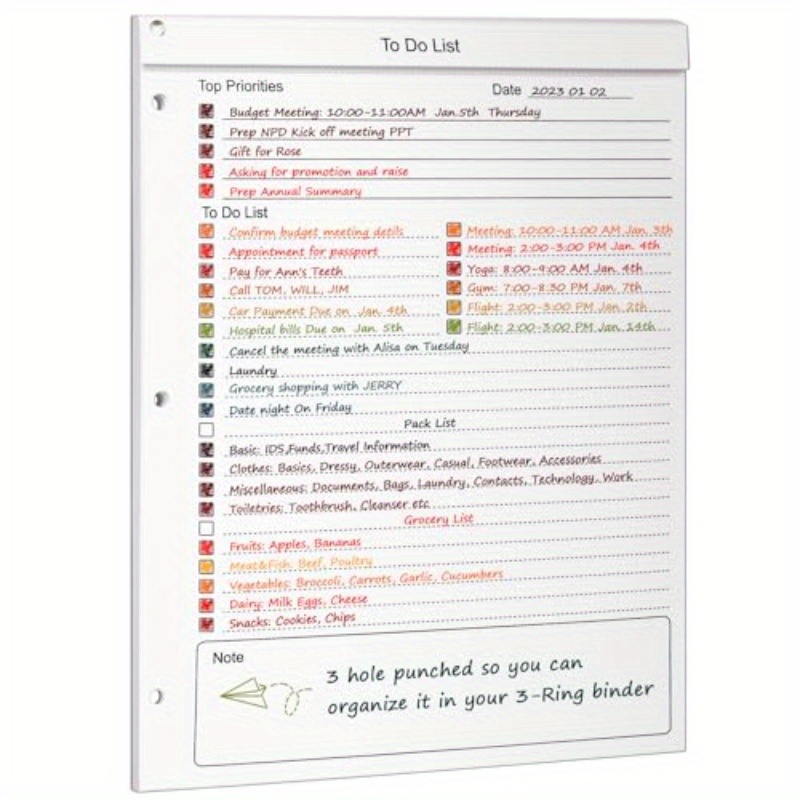 To Do List
Top Priorities
Date 2023 01 02
Budget Meeting: 10:00-11:00AM Jan.5th Thursday
Prep NPD Kick off meeting PPT
Gift for Rose
Asking for promotion and raise
Prep Annual Summary
To Do List
Confirm budget meeting detils
Meeting: 10:00-11:00 AM Jan. 3th
Appointment for passport
Meeting: 2:00-3:00 PM Jan. 4th
Pay for Ann's Teeth
Yoga: 8:00-9:00 AM Jan. 4th
Call TOM, WILL, JIM
Gym: 7:00-8:30 PM Jan. 7th
Car Payment Due on Jan. 4th
Flight: 2:00-3:00 PM Jan. 2th
Hospital bills Due on Jan. 5th
Flight: 2:00-3:00 PM Jan. 14th
Cancel the meeting with Alisa on Tuesday
Laundry
Grocery shopping with JERRY
Date night On Friday
Pack List
Basic: IDS,Funds,Travel Information
Clothes: Basics, Dressy, Outerwear, Casual, Footwear, Accessories
Miscellaneous: Documents, Bags, Laundry, Contacts, Technology, Work
Toiletries: Toothbrush, Cleanser etc
Grocery List
Fruits: Apples, Bananas
Meat&Fish: Beef, Poultry
Vegetables: Broccoli, Carrots, Garlic, Cucumbers
Dairy: Milk Eggs, Cheese
Snacks: Cookies, Chips
Note
3 hole punched so you can
organize it in your 3-Ring binder